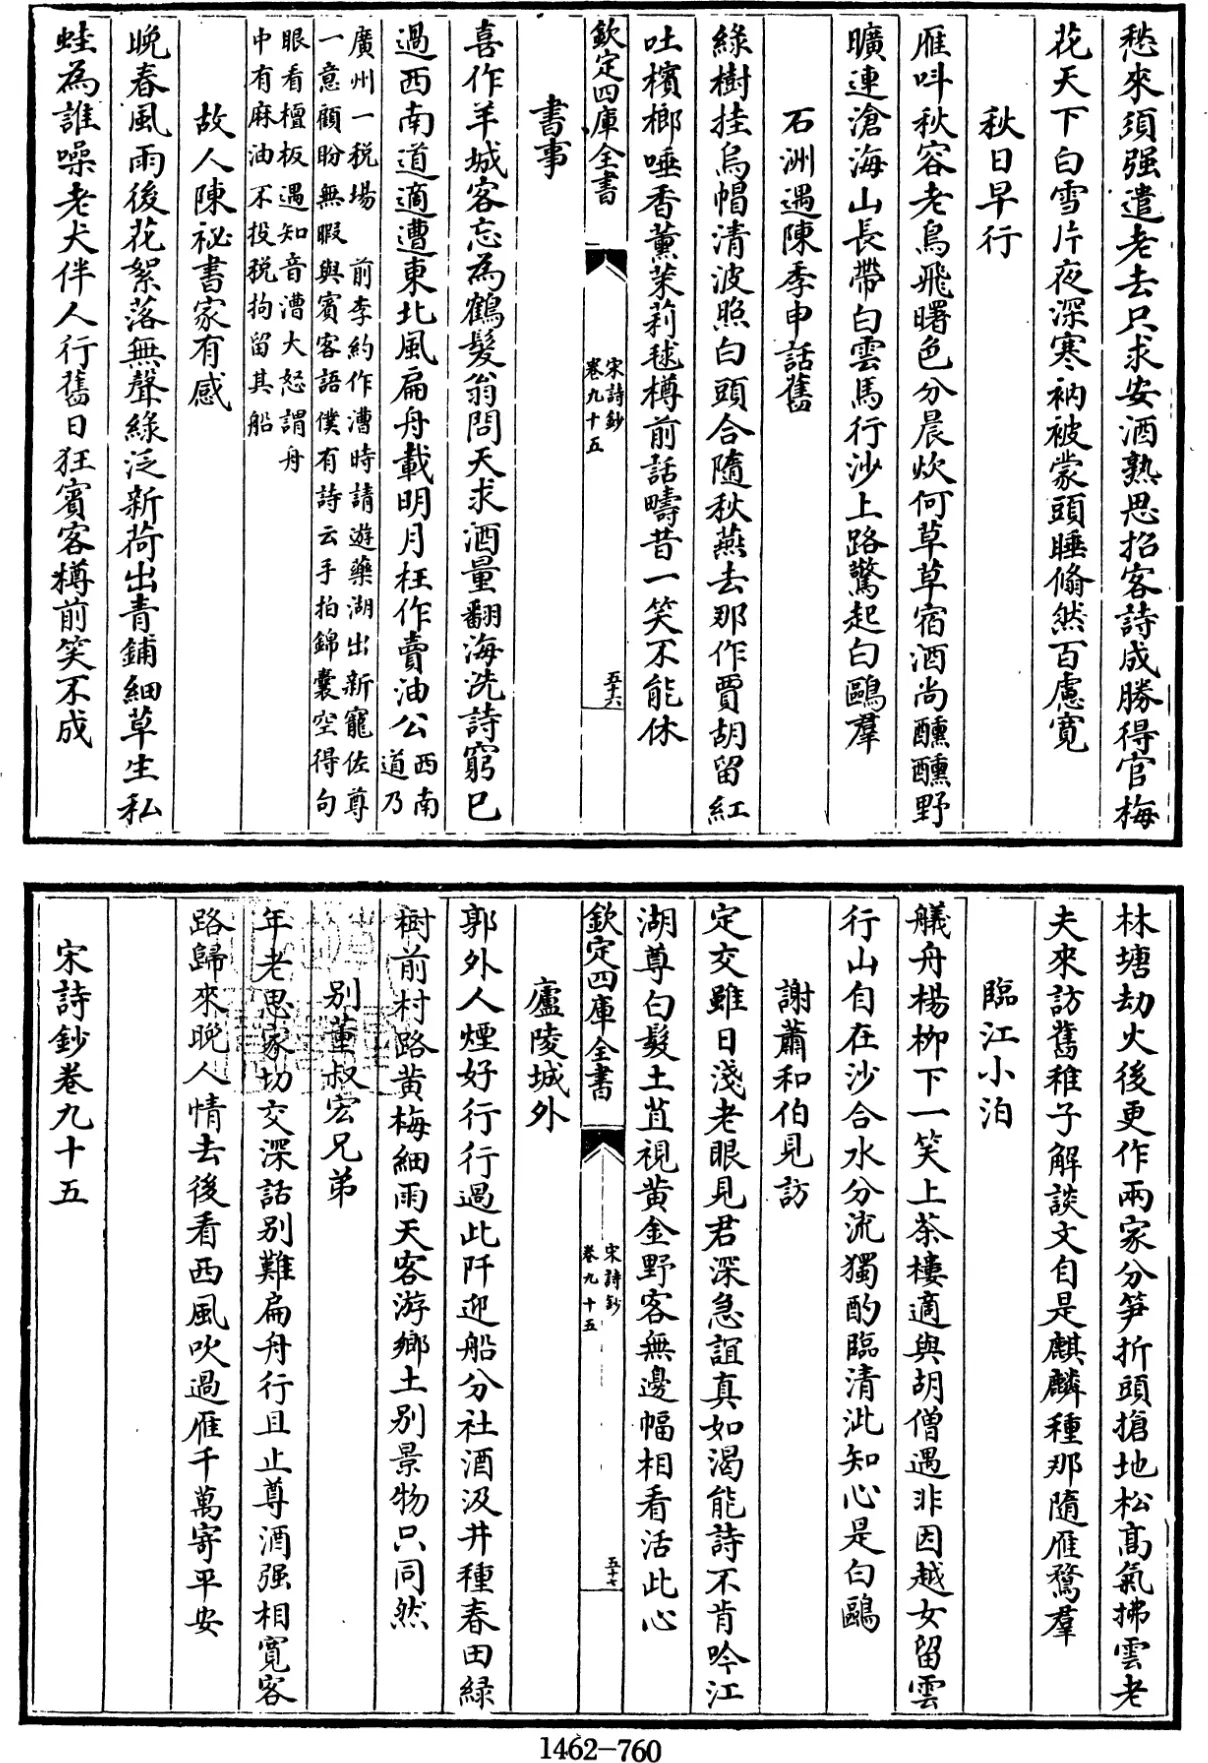 愁來須强遣老去只求安酒熟思招客詩成勝得官梅
花天下白雪片夜深寒衲被蒙頭睡翛然百慮寛
秋日早行
雁呌秋容老烏飛曙色分晨炊何草草宿酒尚醺醺野
曠連滄海山長帶白雲馬行沙上路驚起白鷗羣
石洲遇陳季申話舊
綠樹挂烏帽清波照白頭合隨秋燕去那作賈胡留紅
吐檳榔唾香薰茉莉毬樽前話疇昔一笑不能休
欽定四庫全書
宋詩鈔
卷九十五
五十六
書事
喜作羊城客忘為鶴髮翁問天求酒量翻海洗詩窮已
過西南道適遭東北風扁舟載明月枉作賣油公
西南
道乃
廣州一税場 前李約作漕時請遊藥湖出新寵佐尊
一意顧盼無暇與賓客語僕有詩云手拍錦囊空得句
眼看檀板遇知音漕大怒謂舟
中有麻油不投税拘留其船
故人陳祕書家有感
晩春風雨後花絮落無聲綠泛新荷出青鋪細草生私
蛙為誰噪老犬伴人行舊日狂賓客樽前笑不成
林塘劫火後更作兩家分笋折頭搶地松髙氣拂雲老
夫來訪舊稚子解談文自是麒麟種那隨雁鶩羣
臨江小泊
艤舟楊栁下一笑上茶樓適與胡僧遇非因越女留雲
行山自在沙合水分流獨酌臨清泚知心是白鷗
謝蕭和伯見訪
定交雖日淺老眼見君深急誼真如渴能詩不肯吟江
湖尊白髮土苴視黄金野客無邊幅相看活此心
欽定四庫全書
宋詩鈔
卷九十五
五十七
廬陵城外
郭外人煙好行行過此阡迎船分社酒汲井種春田緑
樹前村路黄梅細雨天客游鄉土别景物只同然
别董叔宏兄弟
年老思家切交深話别難扁舟行且止尊酒强相寛客
路歸來晩人情去後看西風吹過雁千萬寄平安
宋詩鈔卷九十五
1462-760